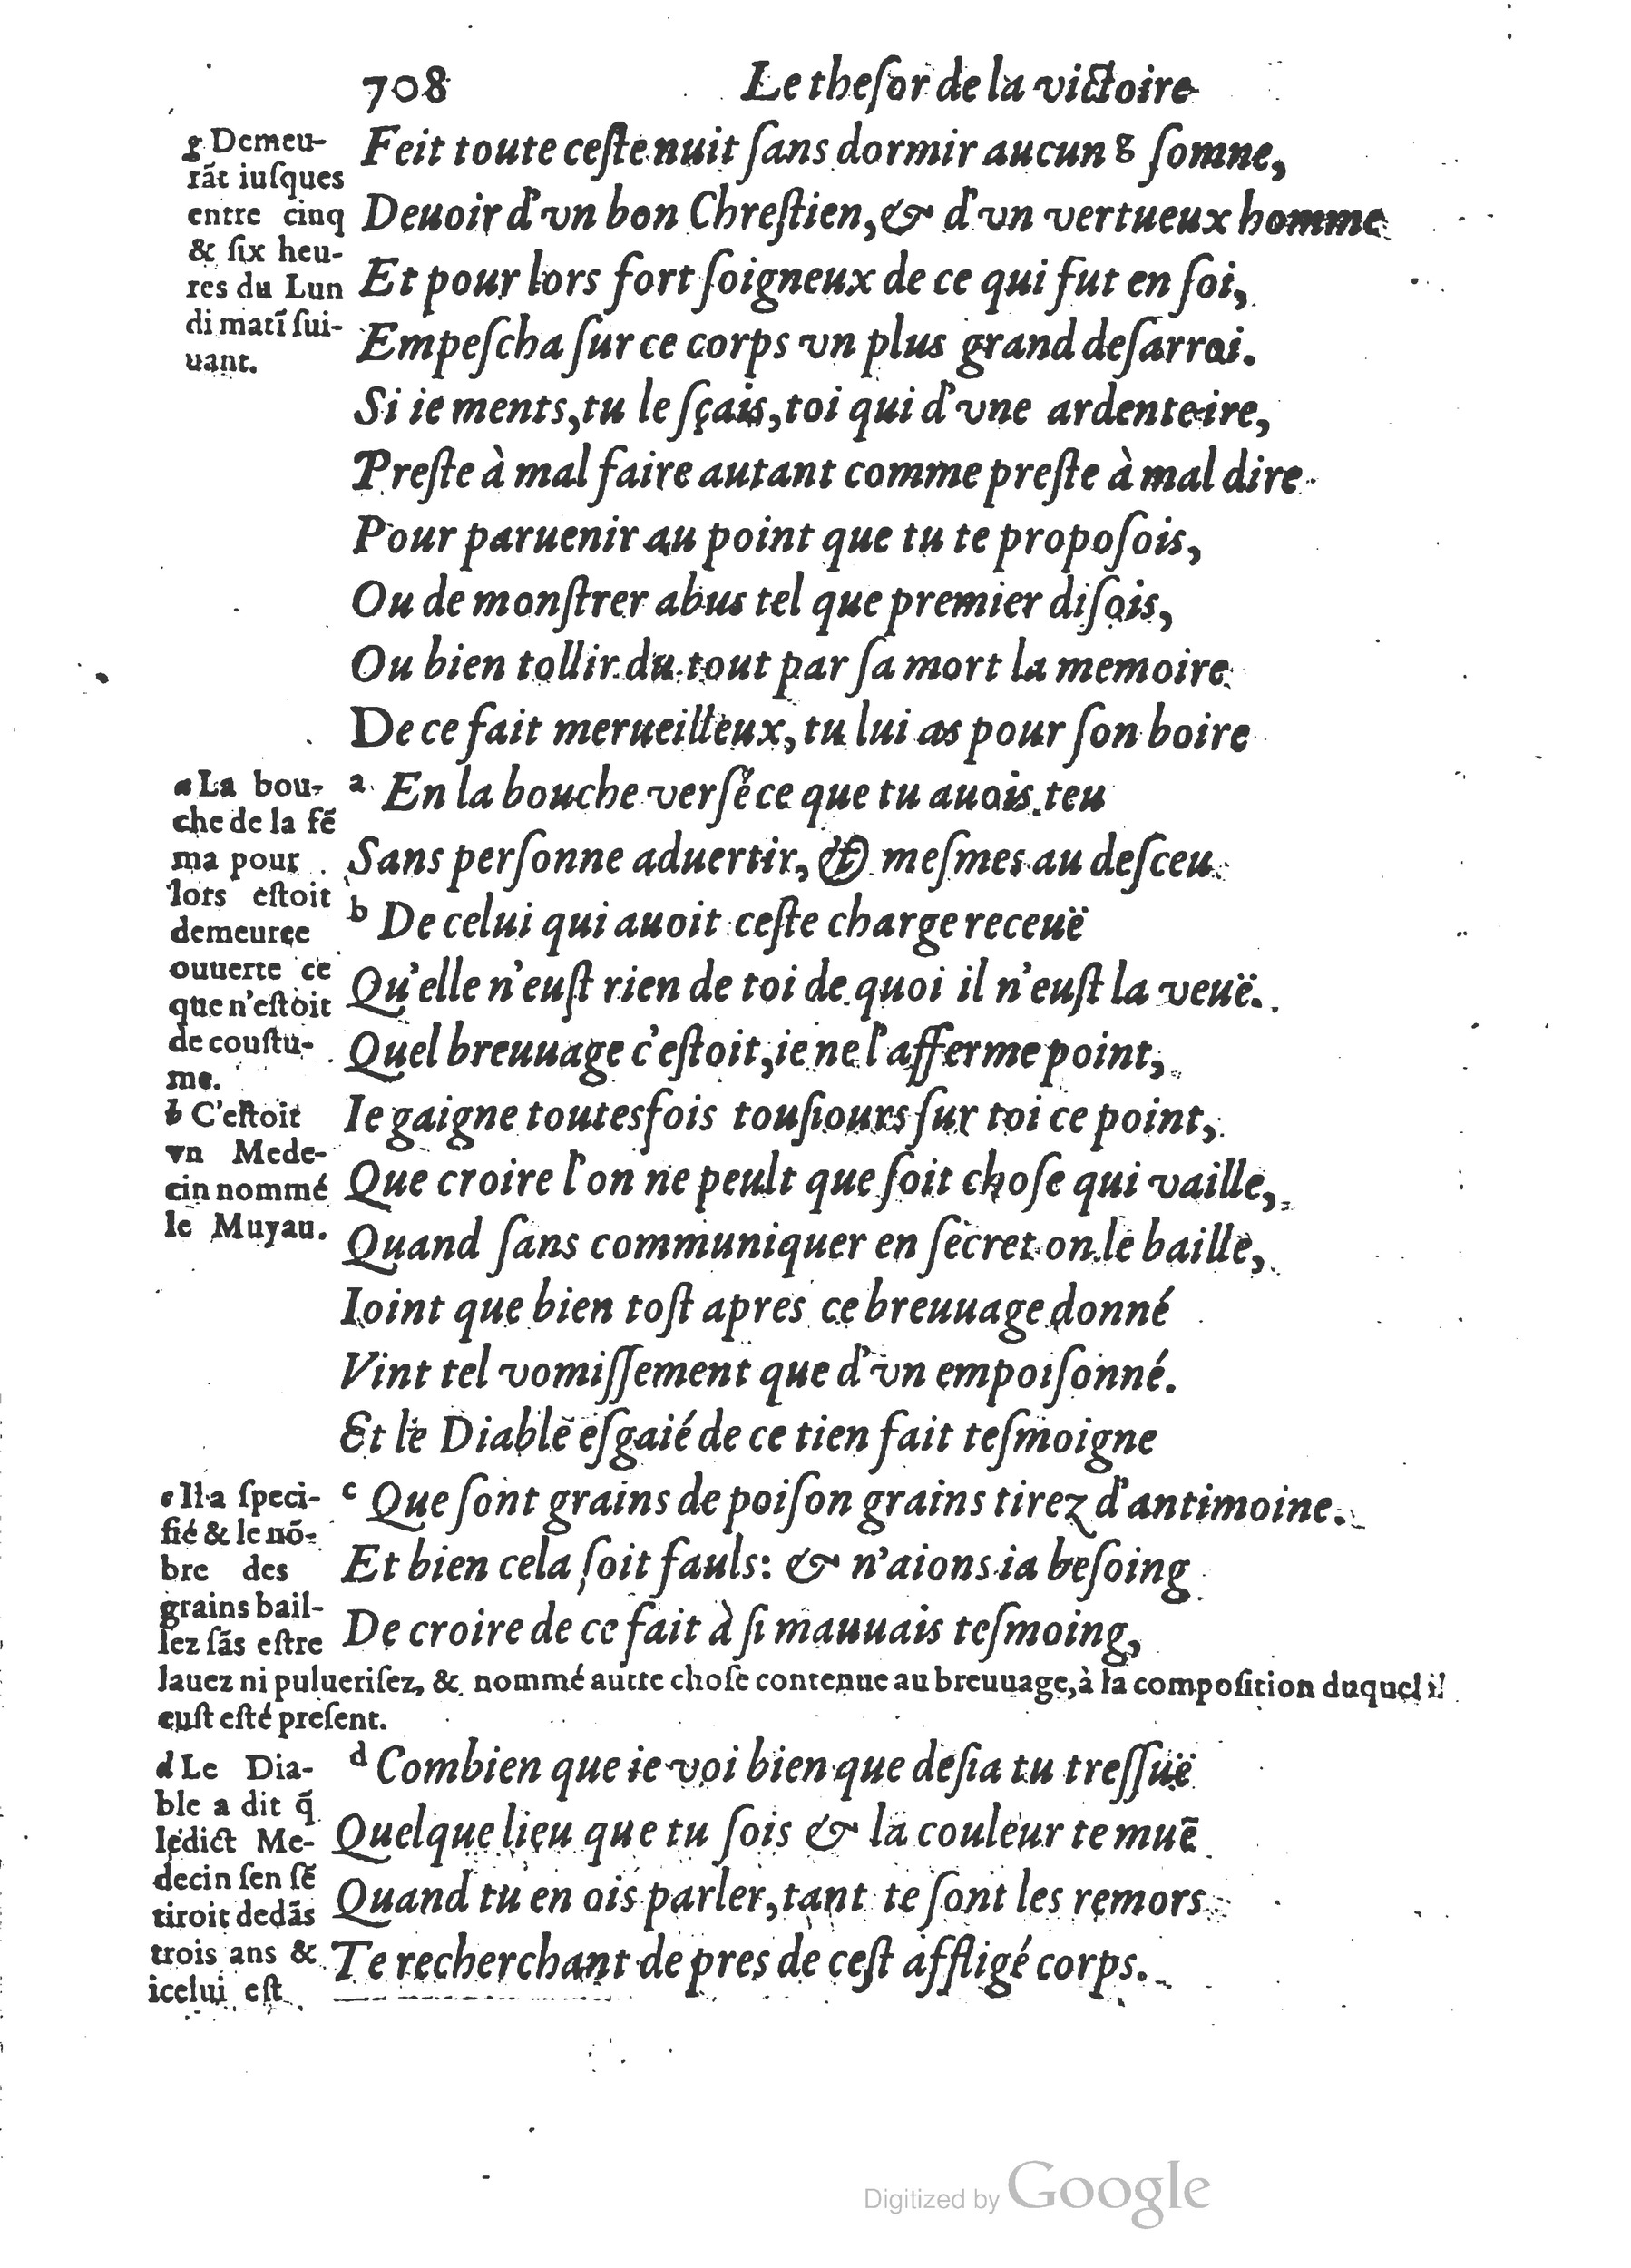 708 Le thesor de la victoire
Feit toute ceste nuit sans dormir aucun g somne,
Deuoir d'vn bon Chrestien, & d'vn vertueux homme
Et pour lors fort soigneux de ce qui fut en soi,
Empescha sur ce corps vn plus grand desarroi.
Si ie ments, tu le sçais, toi qui d'vne ardente ire,
Preste à mal faire autant comme preste à mal dire
Pour paruenir au point que tu te proposois,
Ou de monstrer abus tel que premier disois,
Ou bien tollir du tout par sa mort la memoire
De ce fait merueilleux, tu lui as pour son boire
a En la bouche versé ce que tu auois teu
Sans personne aduertir, & mesmes au desceu
b De celui qui auoit ceste charge receuë
Qu'elle n'eust rien de toi de quoi il n'eust la veuë.
Quel breuuage c'estoit, ie ne l'afferme point,
Ie gaigne toutesfois tousiours sur toi ce point,
Que croire l'on ne peult que soit chose qui vaille,
Quand sans communiquer en secret on le baille,
Ioint que bien tost apres ce breuuage donné
Vint tel vomissement que d'vn empoisonné.
Et le Diable esgaié de ce tien fait tesmoigne
c Que sont grains de poison grains tirez d'antimoine.
Et bien cela soit fauls: & n'aions ia besoing
De croire de ce fait à si mauuais tesmoing,
d Combien que ie voi bien que desia tu tressuë
Quelque lieu que tu sois & la couleur te muë
Quand tu en ois parler, tant te sont les remors
Te recherchant de pres de cest affligé corps.
g Demeu-
rãt iusques
entre cinq
& six heu-
res du Lun
di matĩ sui-
uant.
a La bou-
che de la fẽ
ma pour
lors estoit
demeuree
ouuerte ce
que n'estoit
de coustu-
me.
b C'estoit
vn Mede-
cin nommé
le Muyau.
c Il a speci-
fié & le nõ-
bre des
grains bail-
lez sãs estre
lauez ni puluerisez, & nommé autre chose contenue au breuuage, à la composition duquel il
eust esté present.
d Le Dia-
ble a dit q̃
ledict Me-
decin sen sẽ
tiroit dedãs
trois ans &
icelui est
Digitized by Google